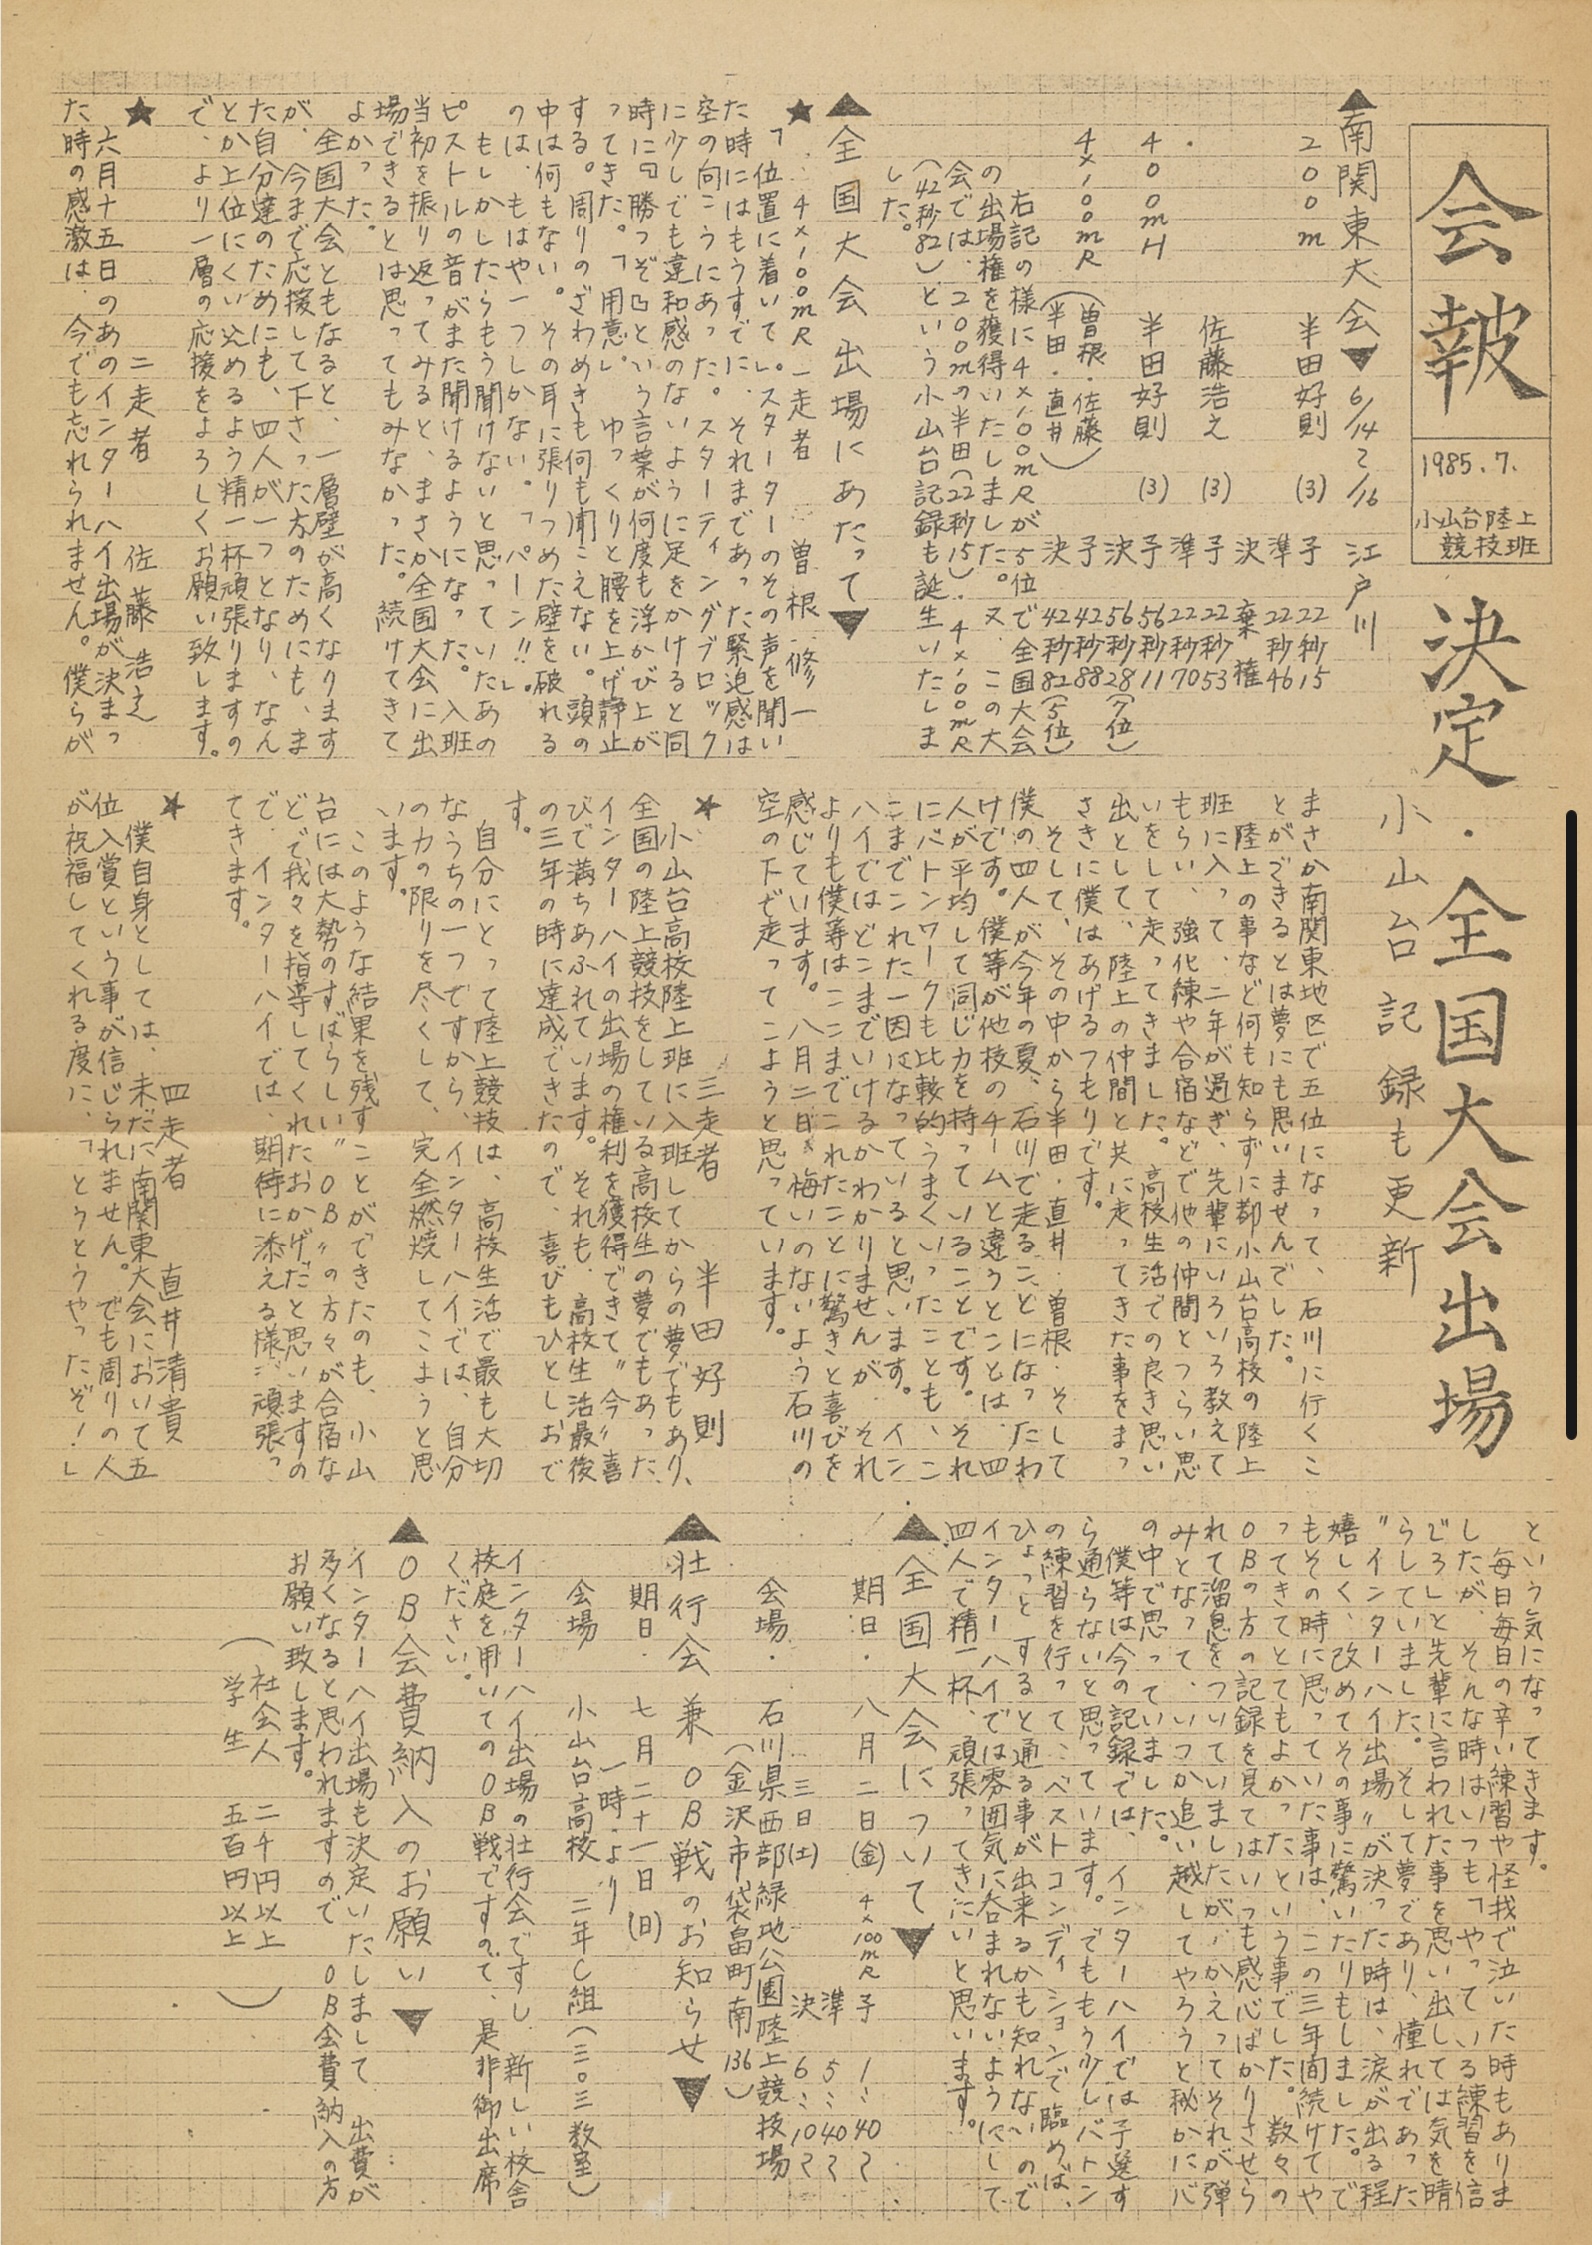 会報
1985.7.
小山台陸上
競技班
決定・全国大会出場
小山台記録も更新
▲南関東大会▼ 6/14〜6/16 江戸川
200m 半田好則 (3) 予 22秒15
準 22秒46
決 棄権
佐藤浩之 (3) 予 22秒53
準 22秒70
400mH 半田好則 (3) 予 56秒11
決 56秒28(7位)
4×100mR (曽根・佐藤 予 42秒88
半田・直井) 決 42秒82(5位)
右記の様に4×100mRが5位で全国大会
の出場権を獲得いたしました。又、この大
会では、200mの半田(22秒15)、4×100mR
(42秒82)という小山台記録も誕生いたしま
した。
▲全国大会出場にあたって▼
★ 4×100mR 一走者 曽根修一
「位置に着いて」。スターターのその声を聞い
た時にはもうすでに、それまであった緊迫感は
空の向こうにあった。スターティングブロック
に少しでも違和感のないように足をかけると同
時に『勝つぞ』という言葉が何度も浮かび上が
ってきた。「用意」。ゆっくりと腰を上げ静止
する。周りのざわめきも何も聞こえない。頭の
中は何もない。その耳に張りつめた壁を破れる
のは、もはや一つしかない。「パーン!!」。
もしかしたらもう聞けないと思っていたあの
ピストルの音がまた聞けるようになった。入班
当初を振り返ってみると、まさか全国大会に出
場できるとは思ってもみなかった。続けてきて
よかった。
全国大会ともなると、一層壁が高くなります
が、今まで応援して下さった方のためにも、ま
た自分達のためにも、四人が一つとなり、なん
とか上位にくい込めるよう精一杯頑張りますの
で、より一層の応援をよろしくお願い致します。
★ 二走者 佐藤浩之
六月十五日のあのインターハイ出場が決まっ
た時の感激は、今でも忘れられません。僕らが
まさか南関東地区で五位になって、石川に行くこ
とができるとは夢にも思いませんでした。
陸上の事など何も知らずに都小山台高校の陸上
班に入って、二年が過ぎ、先輩にいろいろ教えて
もらい、強化練や合宿などで他の仲間とつらい思
いをして走ってきました。高校生活での良き思い
出として、陸上の仲間と共に走ってきた事をまっ
さきに僕はあげるつもりです。
そして、その中から半田・直井・曽根・そして
僕の四人が今年の夏、石川で走ることになったわ
けです。僕等が他校のチームと違うとことは、四
人が平均して同じ力を持っていることです。それ
にバトンワークも比較的うまくいったことも、こ
こまでこれた一因になっていると思います。イン
ハイではどこまでいけるかわかりませんが、それ
よりも僕等はここまでこれたことに驚きと喜びを
感じています。八月二日、悔いのないよう石川の
空の下で走ってこようと思っています。
★ 三走者 半田好則
小山台高校陸上班に入班してからの夢でもあり、
全国の陸上競技をしている高校生の夢でもあった
インターハイの出場の権利を獲得できて〝今〟喜
びで満ちあふれています。それも、高校生活最後
の三年の時に達成できたので、喜びもひとしおで
す。
自分にとって陸上競技は、高校生活で最も大切
なうちの一つですから、インターハイでは、自分
の力の限りを尽くして、完全燃焼してこようと思
います。
このような結果を残すことができたのも、小山
台には大勢のすばらしい〝OB〟の方々が合宿な
どで我々を指導してくれたおかげだと思いますの
で、インターハイでは、期待に添える様に頑張っ
てきます。
★ 四走者 直井清貴
僕自身としては、未だに南関東大会において五
位入賞という事が信じられません。でも周りの人
が祝福してくれる度に、「とうとうやったぞ!」
という気になってきます。
毎日毎日の辛い練習や怪我で泣いた時もありま
したが、そんな時はいつも「やっている練習を信
じろ」と先輩に言われた事を思い出しては気を晴
らしていました。そして夢であり、憧れであった
〝インターハイ出場〟が決った時は、涙が出る程
嬉しく、改めてその事に驚いたりもしました。で
もその時に思っていた事は、この三年間続けてや
ってきてとてもよかったという事でした。数々の
OBの方の記録を見てはいつも感心ばかりさせら
れて溜息をついていましたが、かえってそれが弾
みとなって、いつか追い越してやろうと秘かに心
の中で思っていました。
僕等は今の記録では、インターハイでは予選す
ら通らないと思っています。でももう少しバトン
の練習を行って、ベストコンディションで臨めば、
ひょっとすると通る事が出来るかも知れないので
インターハイでは雰囲気に呑まれないようにして
四人で精一杯、頑張ってきたいと思います。
▲全国大会について▼
期日. 八月二日(金) 4×100mR 予 1:40〜
準 5:40〜
三日(土) 決 6:10〜
会場. 石川県西部緑地公園陸上競技場
(金沢市袋畠町南136)
▲壮行会兼OB戦のお知らせ▼
期日. 七月二十一日(日)
一時より
会場 小山台高校 二年C組(三〇三教室)
インターハイ出場の壮行会ですし、新しい校舎
校庭を用いてのOB戦ですので、是非御出席
ください。
▲OB会費納入のお願い▼
インターハイ出場も決定いたしまして 出費が
多くなると思われますので OB会費納入の方
お願い致します。
(社会人 二千円以上
学生 五百円以上)